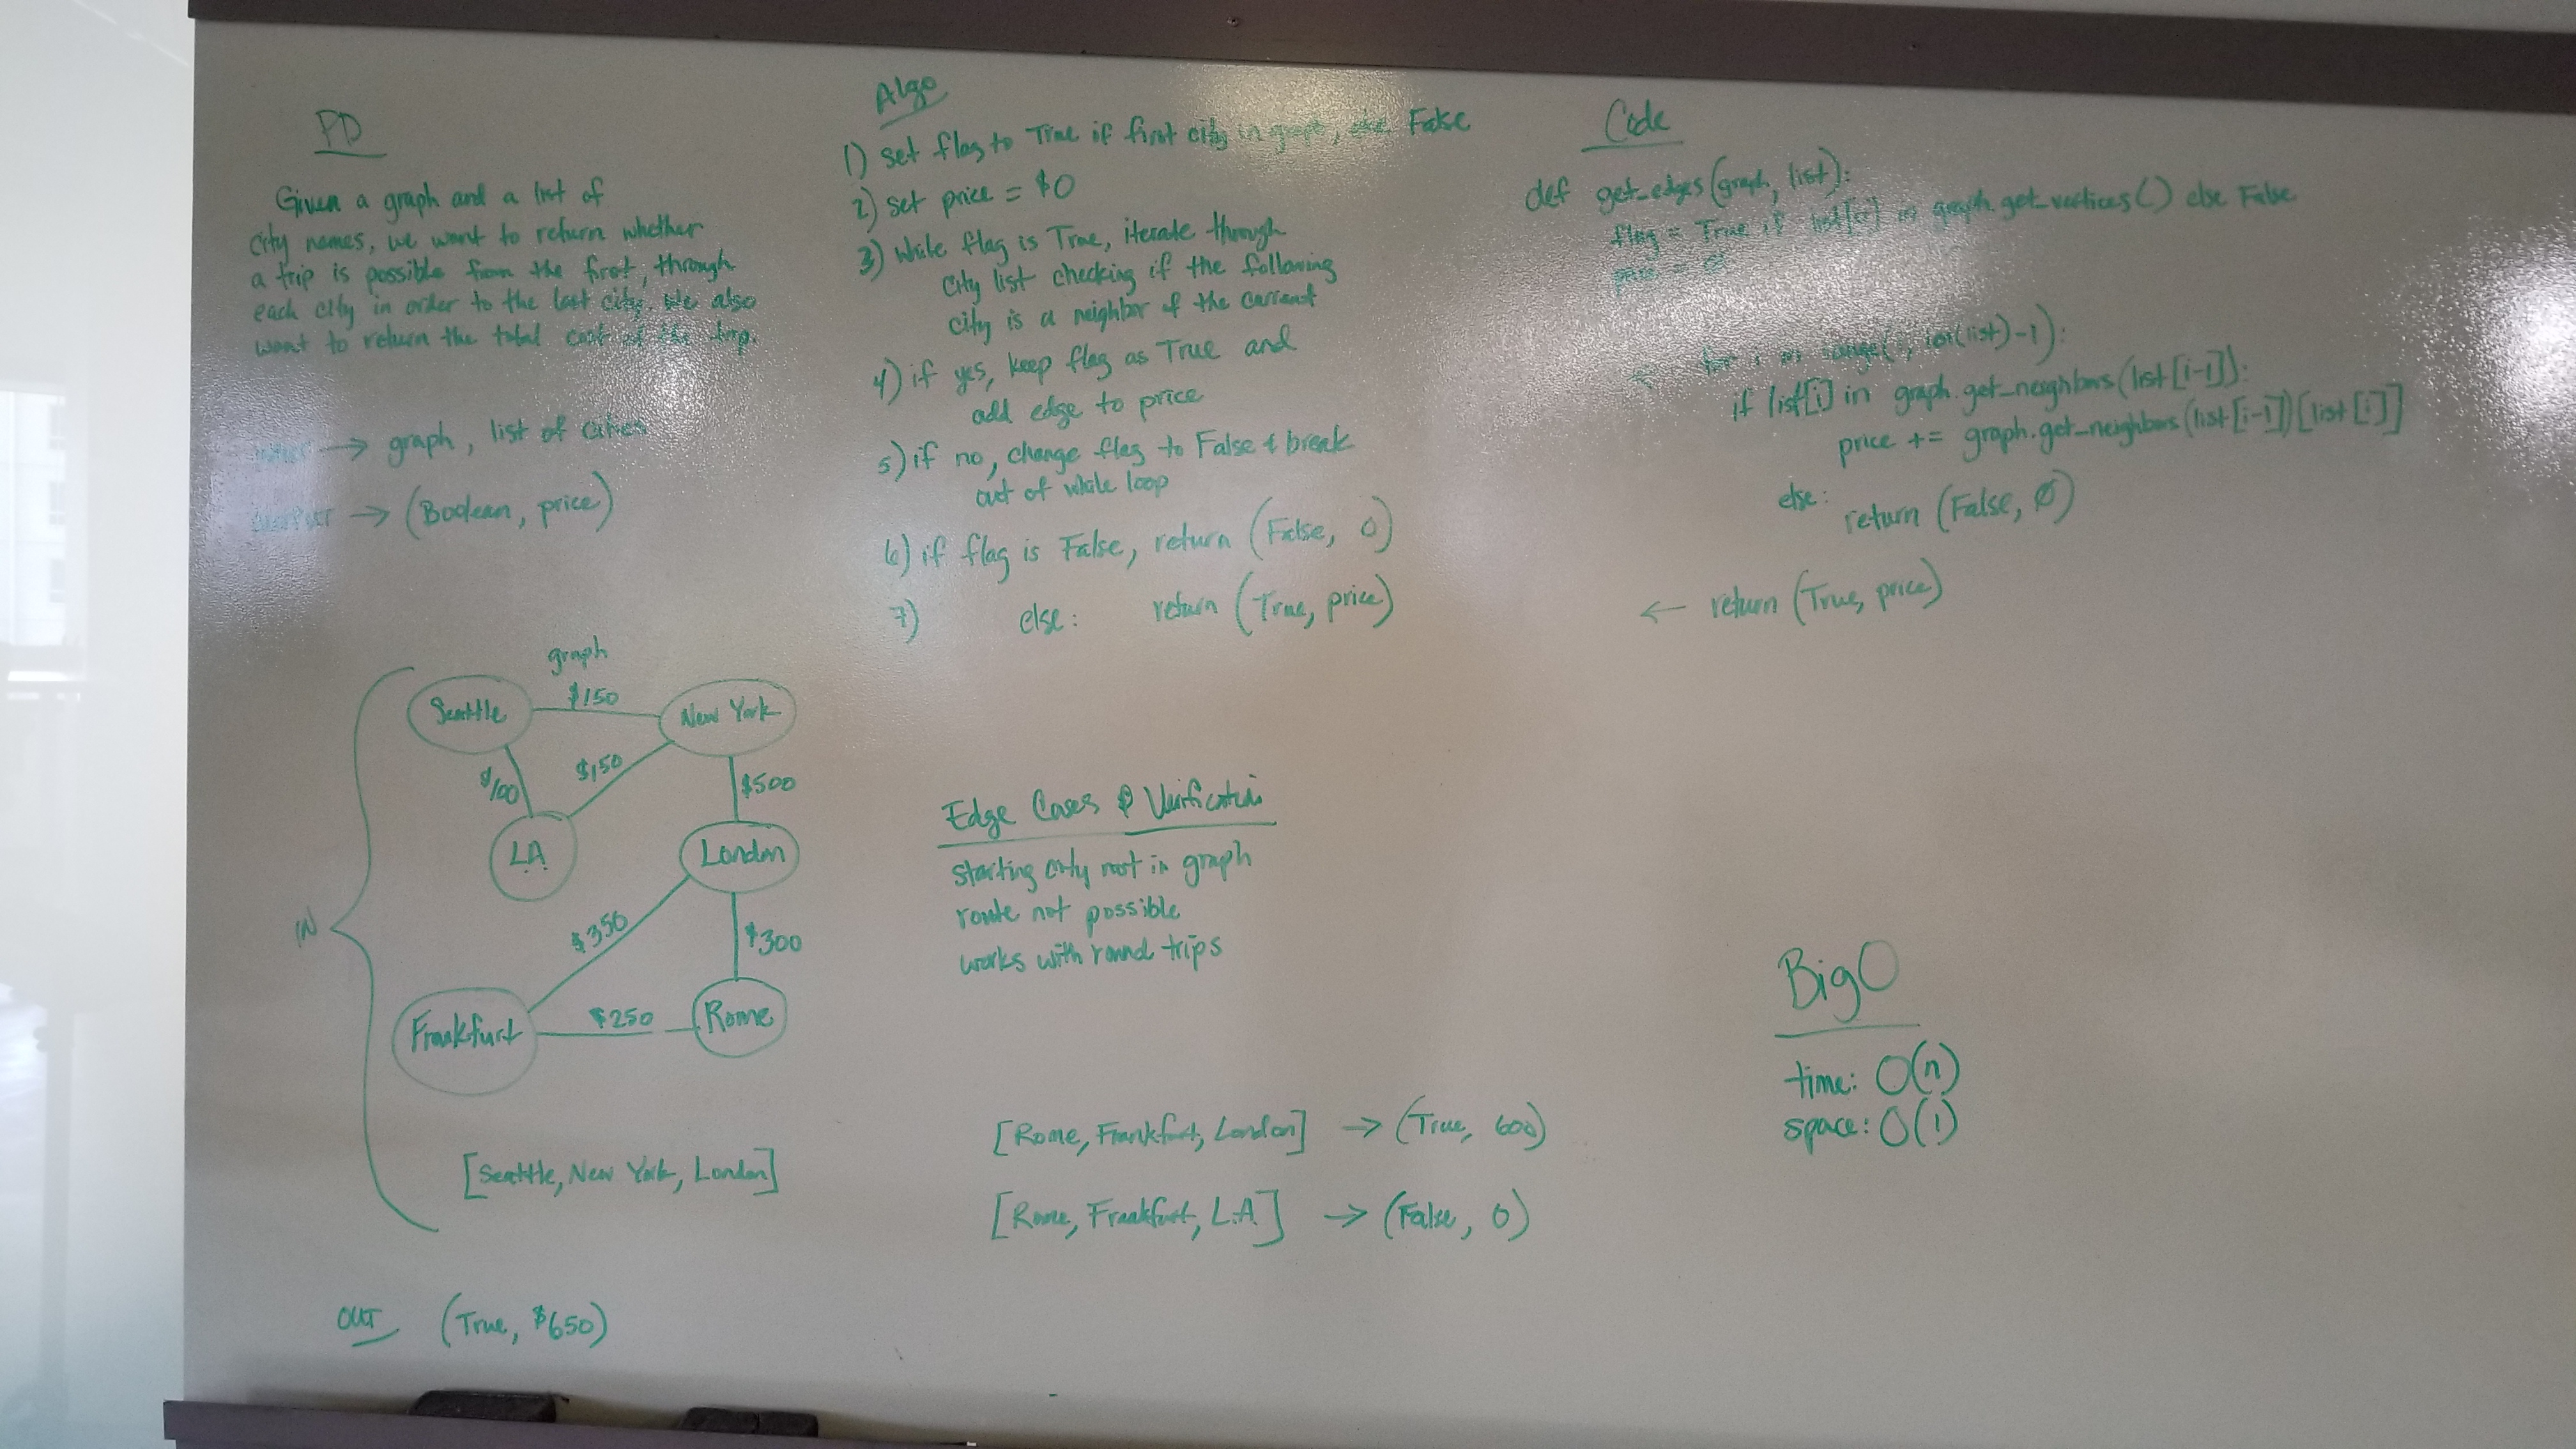 PD
Given a graph and a list of
city names, we want to return whether
a trip is possible from the first, through
each city in order to the last city. We also
want to return the total cost of the trip.
→ graph, list of cities
OUTPUT → (Boolean, price)
graph
Seattle
$150
New York
$100
$150
$500
LA
London
IN
$350
$300
Frankfurt
$250
Rome
[Seattle, New York, London]
OUT (True, $650)
Algo
1) set flag to True if first city in graph, else False
2) set price = $0
3) while flag is True, iterate through
city list checking if the following
city is a neighbor of the current
4) if yes, keep flag as True and
add edge to price
5) if no, change flag to False & break
out of while loop
6) if flag is False, return (False, 0)
7) else: return (True, price)
Edge Cases & Verification
starting city not in graph
route not possible
works with round trips
[Rome, Frankfurt, London] → (True, 600)
[Rome, Frankfurt, L.A.] → (False, 0)
Code
def get_edges(graph, list):
flag = True if list[0] in graph.get_vertices() else False
price = 0
← for i in range(1, len(list)-1):
if list[i] in graph.get_neighbors(list[i-1]):
price += graph.get_neighbors(list[i-1])[list[i]]
else:
return (False, 0)
← return (True, price)
Big O
time: O(n)
space: O(1)